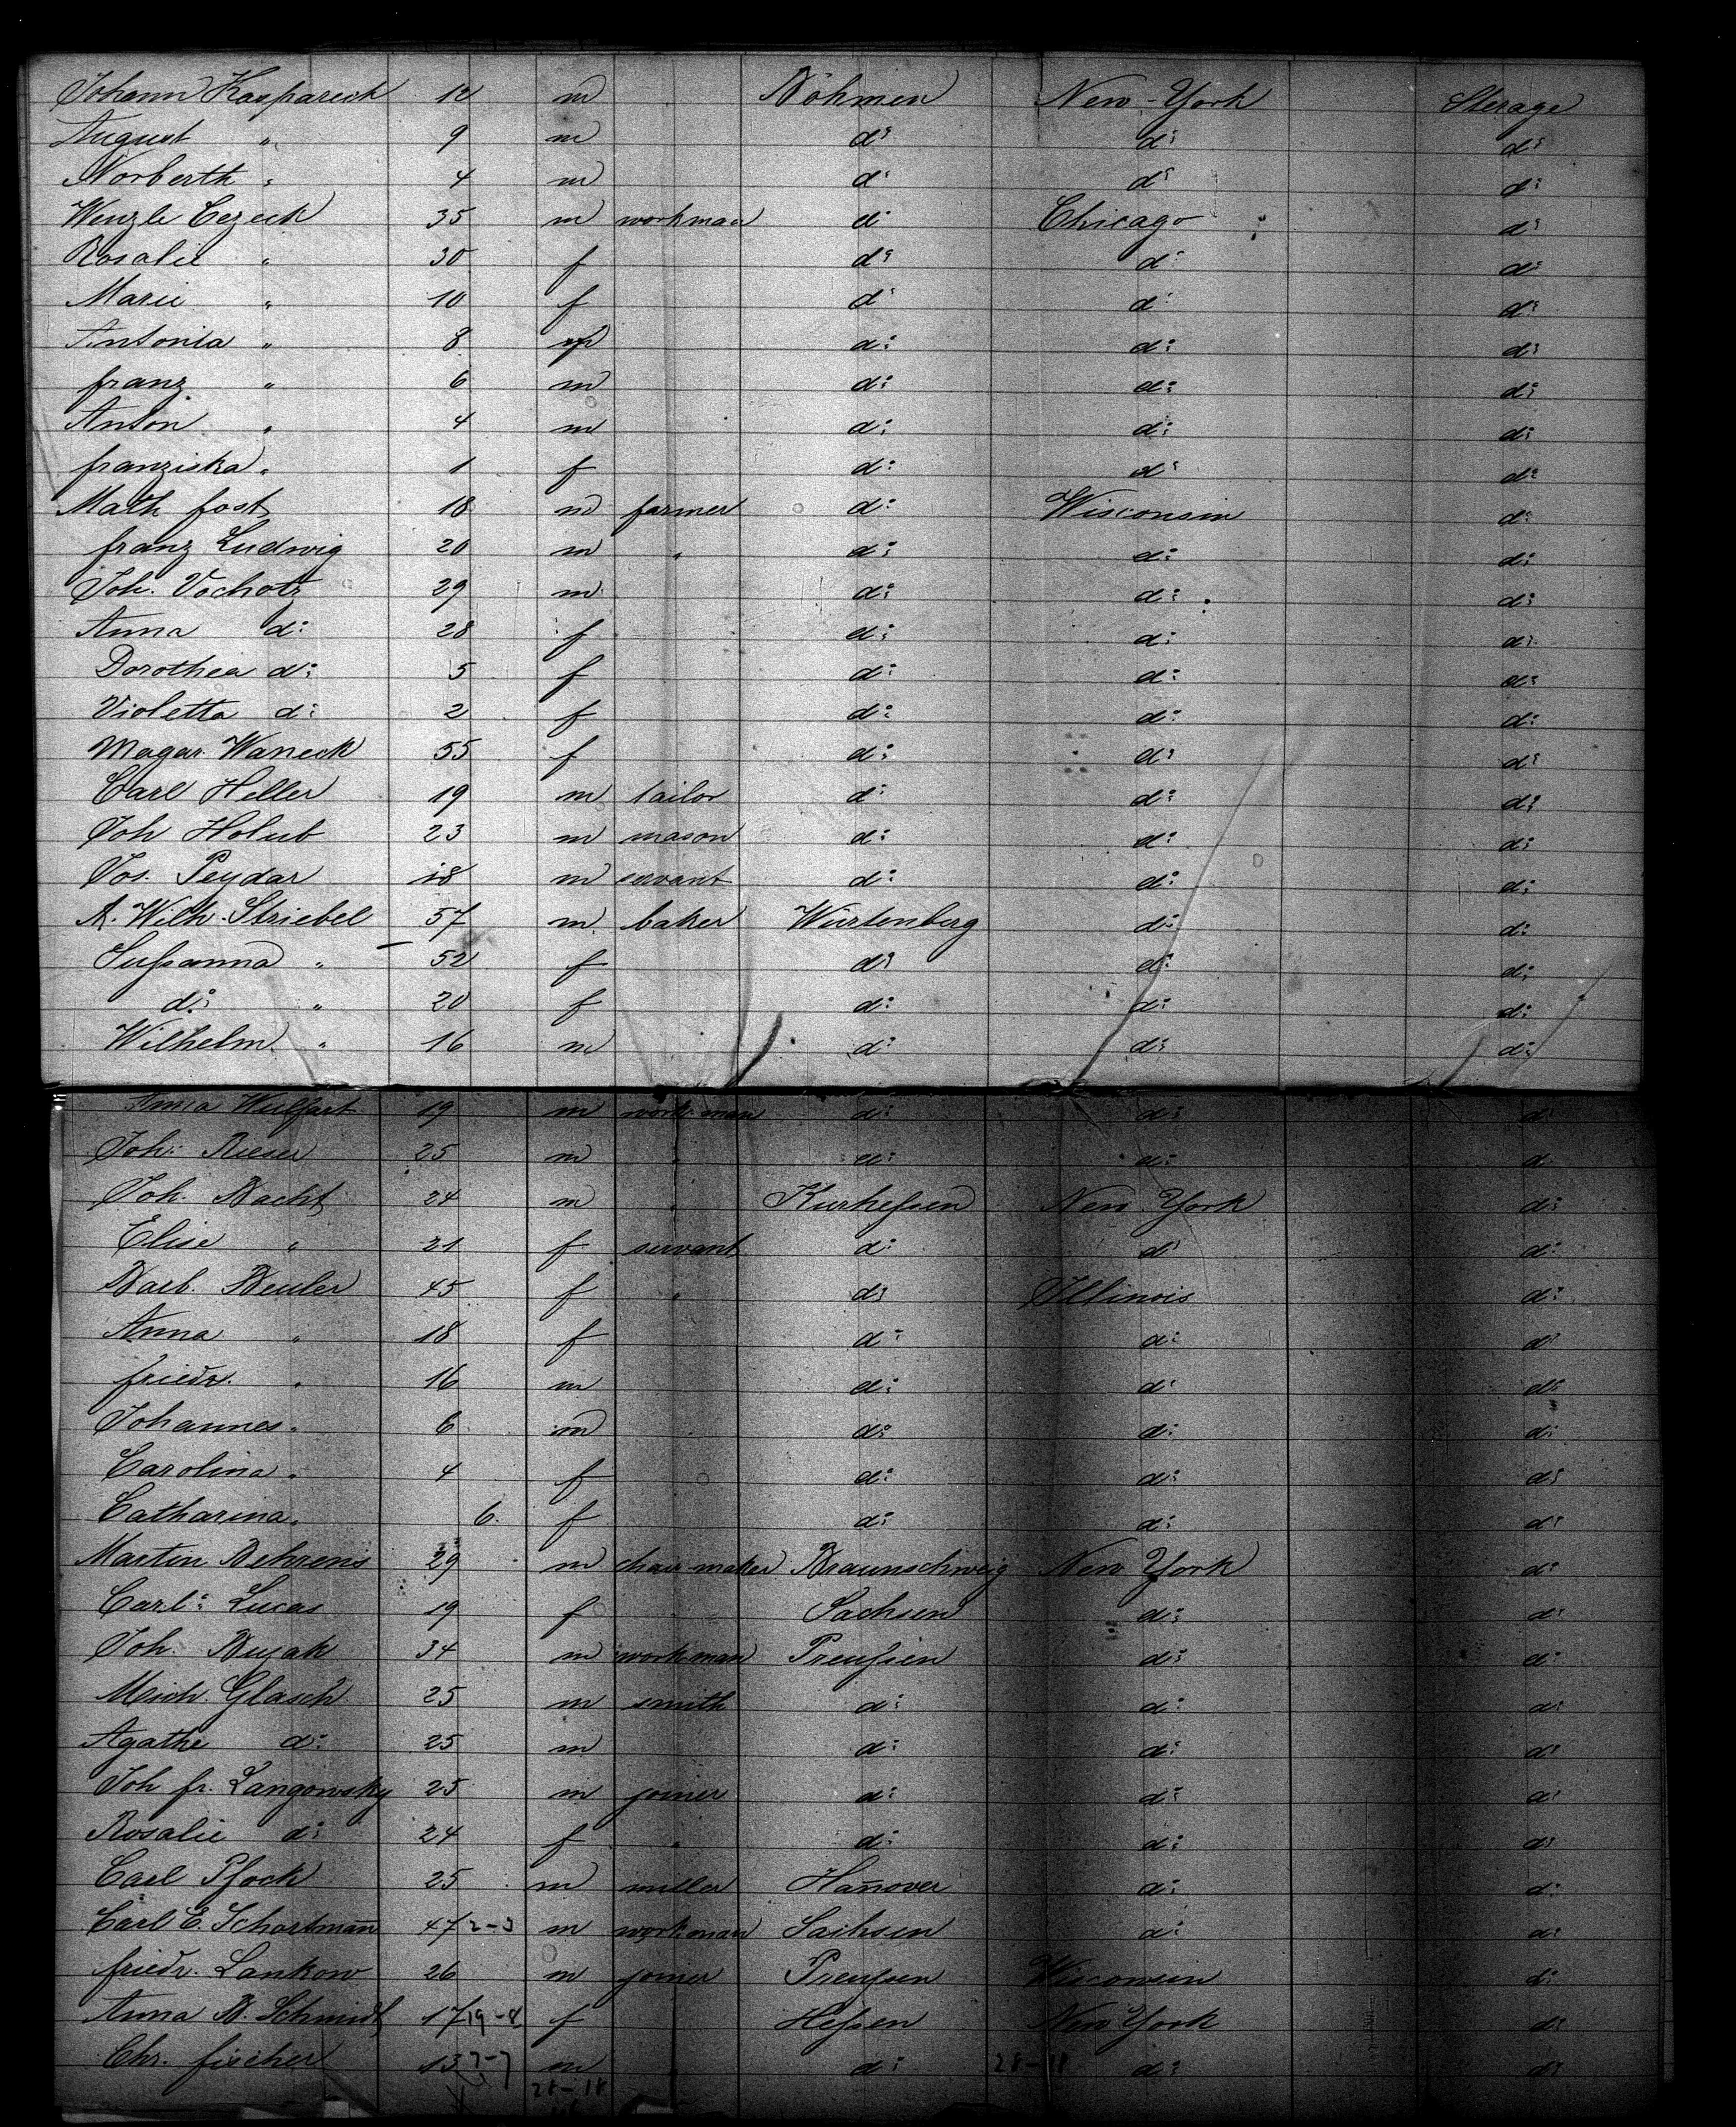 Johann Kaspareck 12 m Böhmen New-York Sterage
August " 9 m d: d: d:
Norberth " 4 m d: d: d:
Wenzle Cezeck 35 m workman d: Chicago d:
Rosalie " 30 f d: d: d:
Marie " 10 f d: d: d:
Antonia " 8 f d: d: d:
franz " 6 m d: d: d:
Anton " 4 m d: d: d:
franziska " 1 f d: d: d:
Math fost 18 m farmer d: Wisconsin d:
franz Ludwig 20 m " d: d: d:
Joh. Vochotz 29 m d: d: d:
Anna d: 28 f d: d: d:
Dorothea d: 5 f d: d: d:
Violetta d: 2 f d: d: d:
Magar. Waneck 55 f d: d: d:
Carl Heller 19 m tailor d: d: d:
Joh Holub 23 m mason d: d: d:
Jos. Peydar 18 m servant d: d: d:
A. Wilh. Striebel 57 m. baker Würtenberg d: d:
Sußanna " 52 f d: d: d:
d: " 20 f d: d: d:
Wilhelm " 16 m d: d: d:
Wulfart 19 m workman d: d: d:
Joh. Rieser 25 m " d: d: d:
Joh. Bacht 24 m " Kurheßen New-York d:
Elise " 21 f servant d: d: d:
Barb. Beuler 45 f " d: Illinois d:
Anna " 18 f d: d: d:
friedr. " 16 m d: d: d:
Johannes " 6 m d: d: d:
Carolina " 4 f d: d: d:
Catharina " 6 f d: d: d:
Martin Behrens 29 m chair-maker Braunschweig New York d:
Carl: Lucas 19 f Sachsen d: d:
Joh. Bujak 34 m workman Preußen d: d:
Mich. Glasch 25 m smith d: d: d:
Agathe d: 25 m d: d: d:
Joh fr. Langowsky 25 m joiner d: d: d:
Rosalie d: 24 f " d: d: d:
Carl Pfock 25 m miller Hanover d: d:
Carl C. Schartman 47 2-3 m workman Sachsen d: d:
friedr. Lankow 26 m joiner Preußen Wisconsin d:
Anna B. Schmidt 17 19-8 f Heßen New York d:
Chr. fischer 13 7-7 m d: 28-18 d: d:
28-18